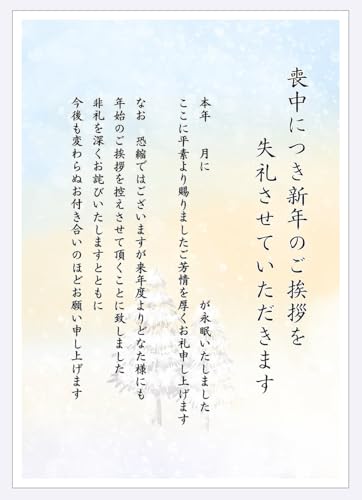 喪中につき新年のご挨拶を
失礼させていただきます
本年　月に　　　が永眠いたしました
ここに平素より賜りましたご芳情を厚くお礼申し上げます
なお　恐縮ではございますが来年度よりどなた様にも
年始のご挨拶を控えさせて頂くことに致しました
非礼を深くお詫びいたしますとともに
今後も変わらぬお付き合いのほどお願い申し上げます